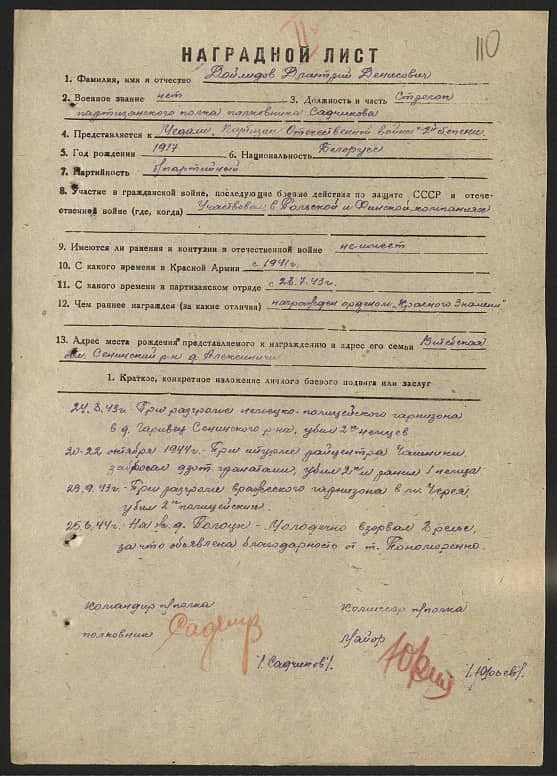 110
II
НАГРАДНОЙ ЛИСТ
1. Фамилия, имя и отчество Дмитрий Денисович
2. Военное звание нет 3. Должность и часть Стрелок
партизанского полка полковника Садчикова
4. Представляется к Медали "Партизан Отечественной войны" 2й степени.
5. Год рождения 1917 6. Национальность Белорусс
7. Партийность б/партийный
8. Участие в гражданской войне, последующие боевые действия по защите СССР и отече-
ственной войне (где, когда) Участвовал в Польской и Финской компаниях
9. Имеются ли ранения и контузии в отечественной войне не имеет
10. С какого времени в Красной Армии с 1941г.
11. С какого времени в партизанском отряде с 28.7.43г.
12. Чем ранее награжден (за какие отличия) награжден орденом "Красного Знамени"
13. Адрес места рождения представляемого к награждению и адрес его семьи Витебская
обл. Сенинский р-н д. Алексиничи
1. Краткое, конкретное изложение личного боевого подвига или заслуг
24.8.43г. При разгроме немецко-полицейского гарнизона
в д. Сенинского р-на, убил 2х немцев
20-22 октября 1944г.- При штурме райцентра Чашники
забросал дзот гранатами, убил 2х и ранил 1 немца
29.9.43г.- При разгроме вражеского гарнизона в м. Черея
убил 2х полицейских.
25.6.44г.- На ж.д. Полоцк - Молодечно взорвал рельс,
за что объявлена благодарность от т. Пономоренко.
Командир п/полка Комиссар п/полка
полковник Садчиков майор
/Садчиков/. /Юрьев/.